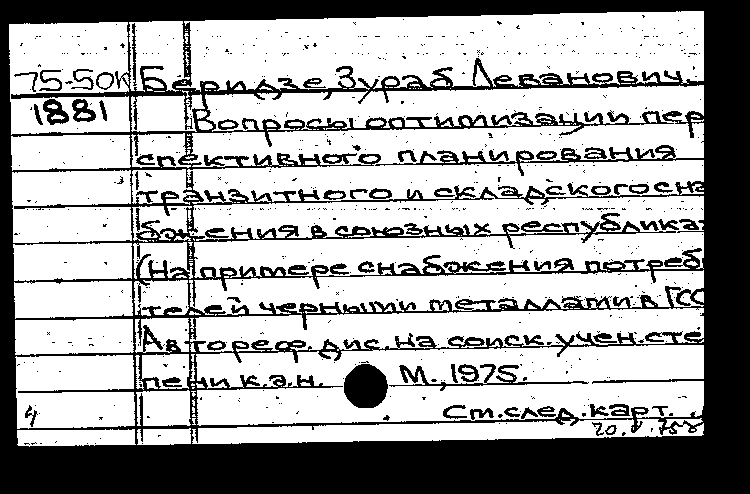 75-50к Беридзе, Зураб Леванович.
1881 Вопросы оптимизации пер
спективного планирования
транзитного и складского сна
бжения в союзных республиках
(На примере снабжения потреб
телей черными металлами в ГСС
Автореф. дис. на соиск. учен. сте
пени к.э.н. М., 1975.
4 См. след. карт.